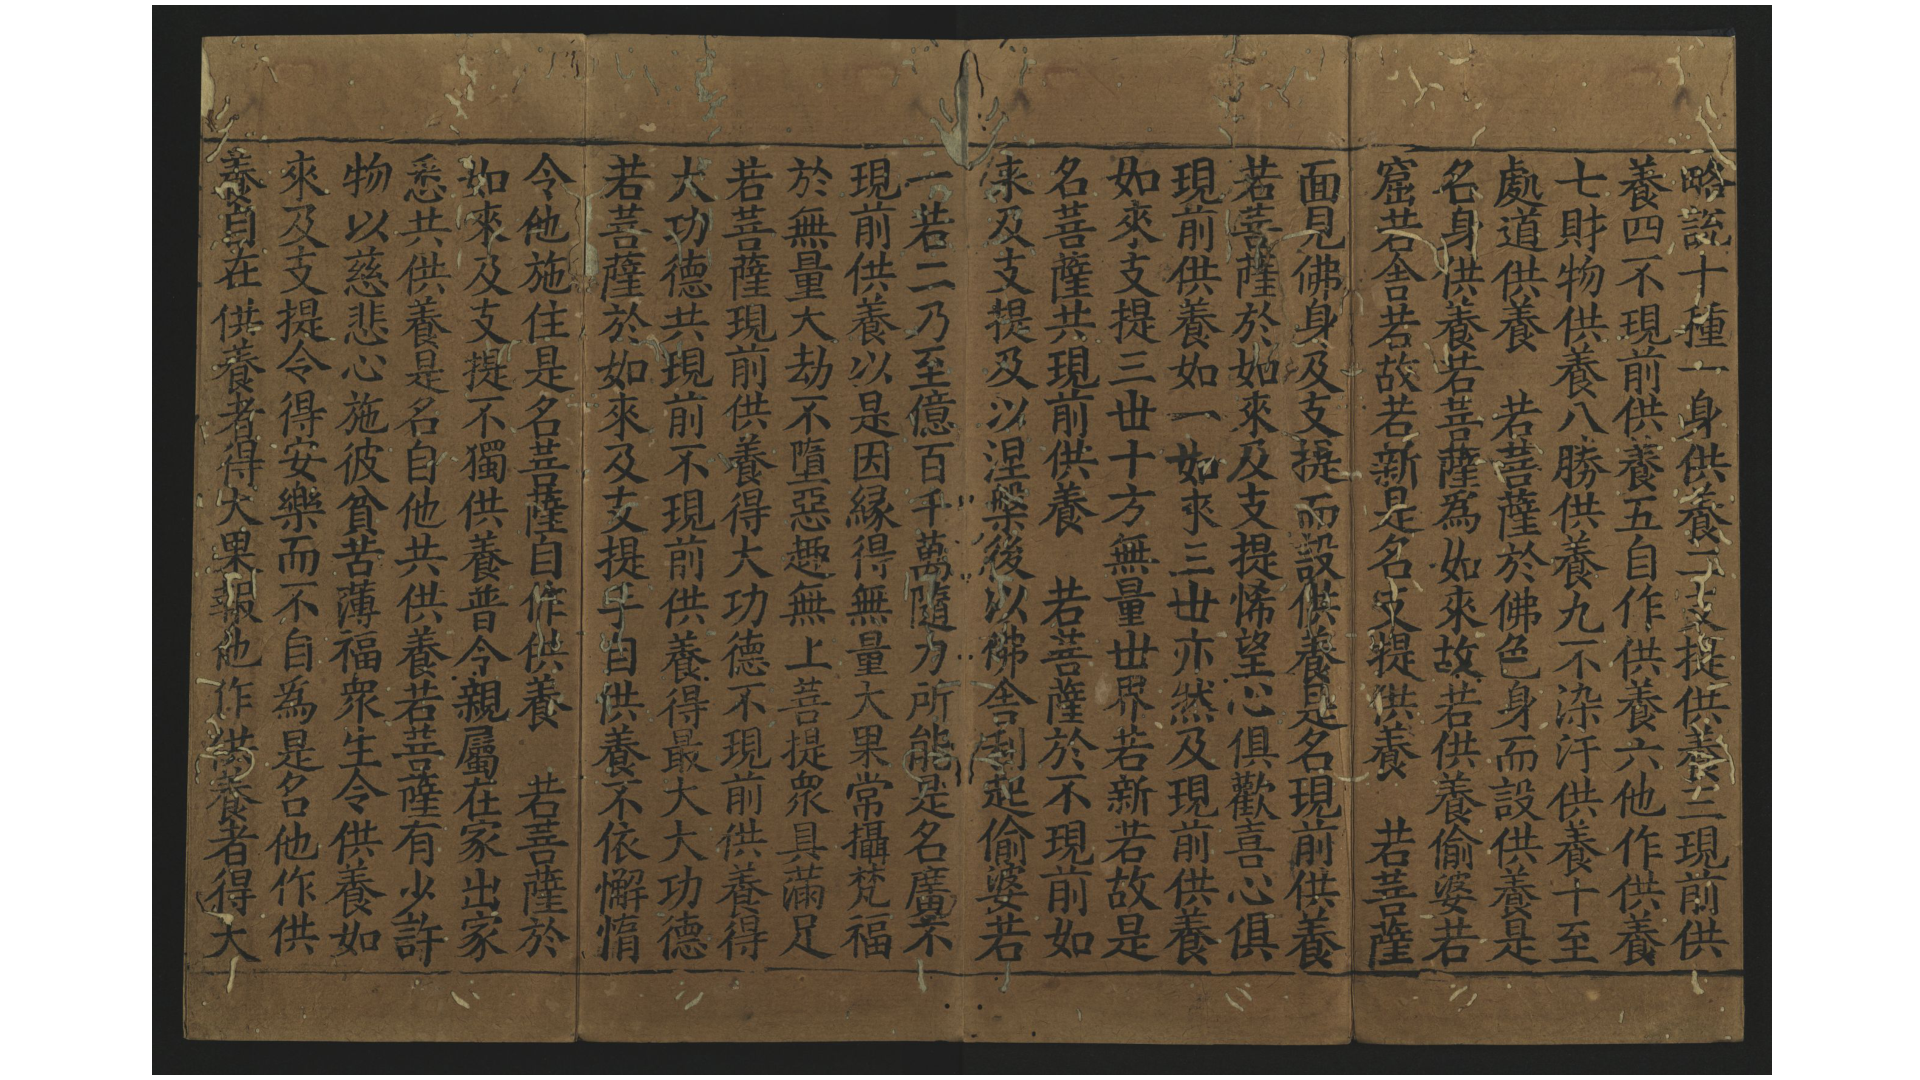 略說十種一身供養二支提供養三現前供
養四不現前供養五自作供養六他作供養
七財物供養八勝供養九不染汙供養十至
處道供養　若菩薩於佛色身而設供養是
名身供養若菩薩爲如來故若供養偷婆若
窟若舍若故若新是名支提供養　若菩薩
面見佛身及支提而設供養是名現前供養
若菩薩於如來及支提悕望心俱歡喜心俱
現前供養如一如來三世亦然及現前供養
如來支提三世十方無量世界若新若故是
名菩薩共現前供養　若菩薩於不現前如
来及支提及以涅槃後以佛舍利起偷婆若
一若二乃至億百千萬隨力所能是名廣不
現前供養以是因緣得無量大果常攝梵福
於無量大劫不墮惡趣無上菩提衆具滿足
若菩薩現前供養得大功德不現前供養得
大功德共現前不現前供養得最大大功德
若菩薩於如來及支提手自供養不依懈惰
令他施住是名菩薩自作供養　若菩薩於
如來及支提不獨供養普令親屬在家出家
悉共供養是名自他共供養若菩薩有少許
物以慈悲心施彼貧苦薄福衆生令供養如
來及支提令得安樂而不自爲是名他作供
養自在供養者得大果報他作供養者得大